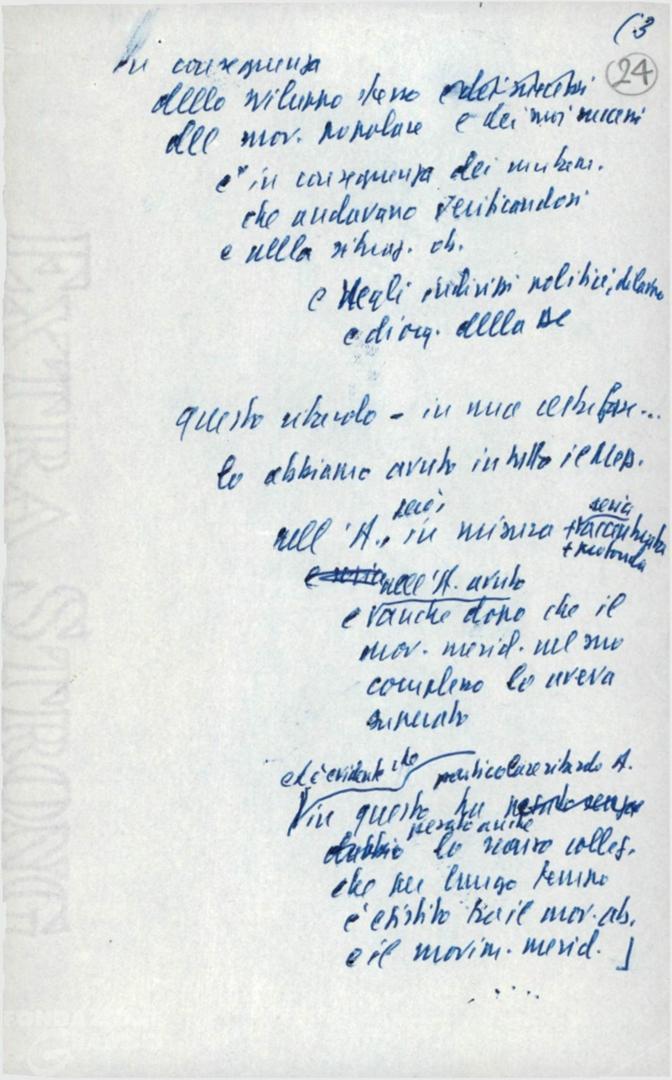 (3
24
In conseguenza
dello sviluppo stesso e dei successi
del mov. popolare e dei suoi successi
e in conseguenza dei mutam.
che andavano verificandosi
e nella situaz. ob.
e negli indirizzi politici, di lavoro
e di org. della
Questo ritardo - in una certa fase...
lo abbiamo avuto in tutto il Mezz.
però, seria
nell'A., in misura +
+ profonda
e seria nell'A. avuto
e anche dopo che il
mov. merid. nel suo
complesso lo aveva
superato
ed è evidente che particolare ritardo A.
in questo ha pesato senza
pesato anche
dubbio lo scarso colleg.
che per lungo tempo
è esistito tra il mov. ab.
e il movim. merid. ]
.....
EXTRA STRONG
FONDAZIONE
GRAMSCI